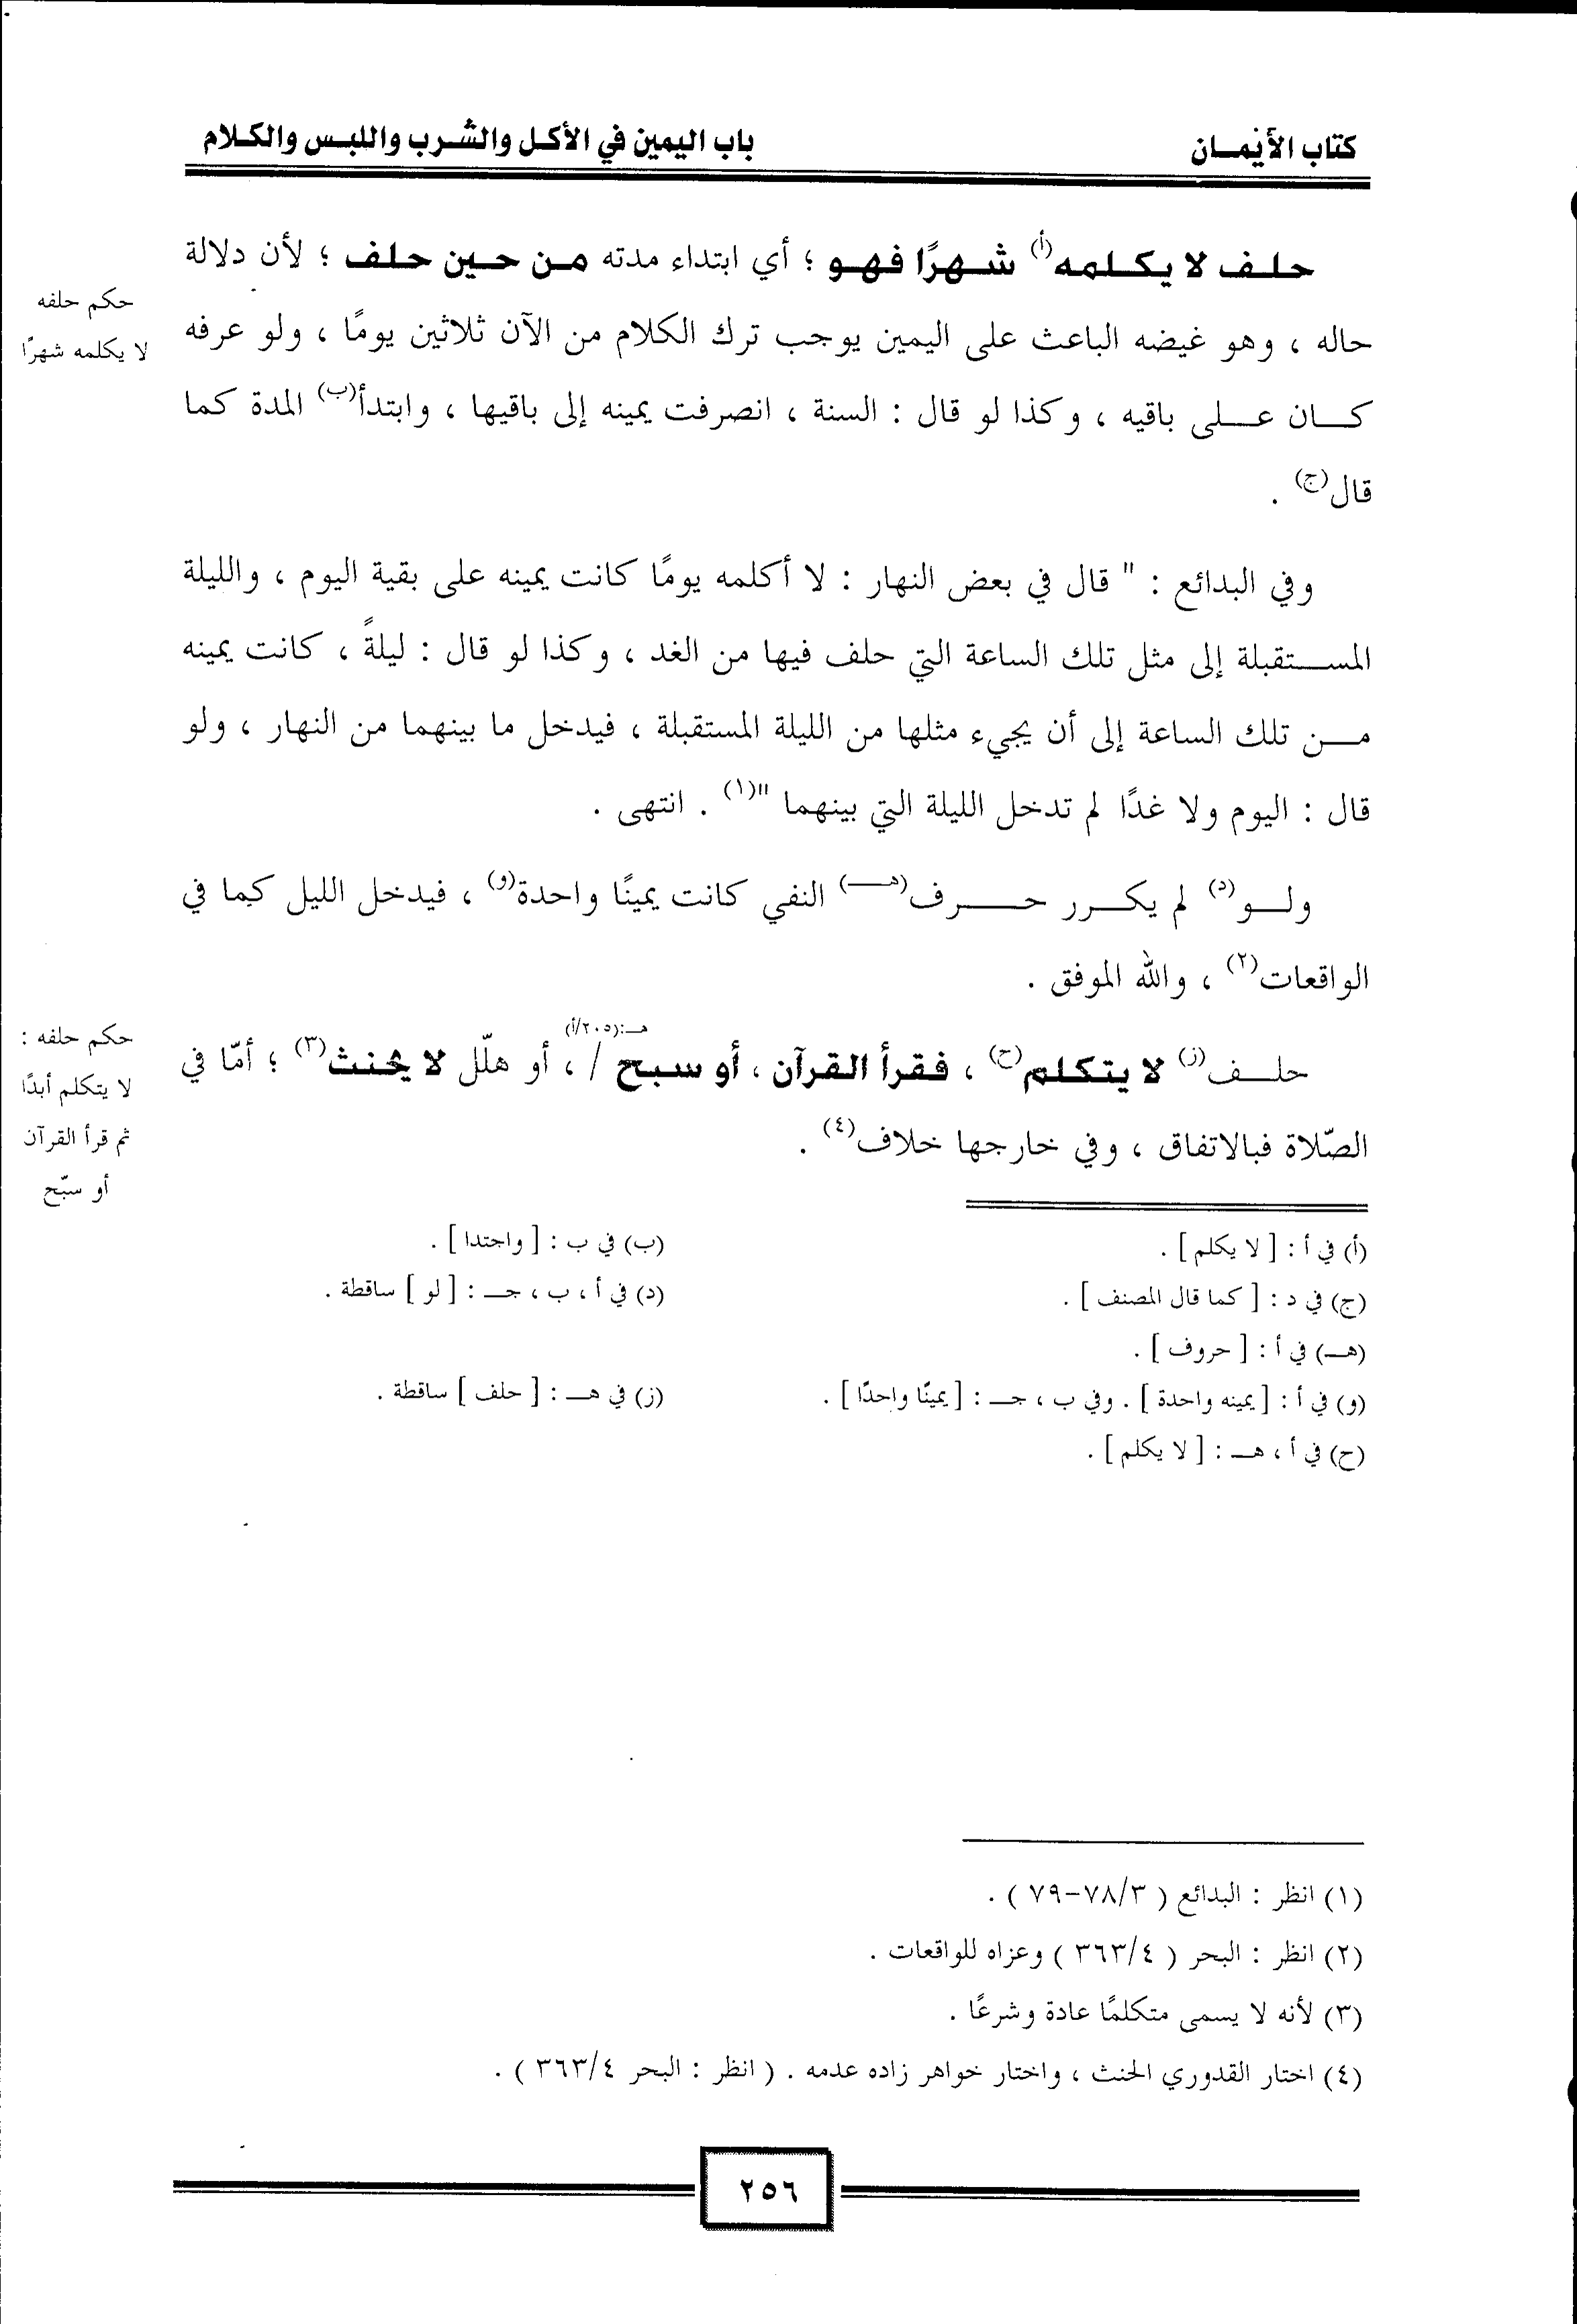 كتاب الأيمـان
باب اليمين في الأكـل والشـرب واللبـس والكـلام
حلـف لا يكـلمه(أ) شـهرًا فهـو ؛ أي ابتداء مدته مـن حـين حلـف ؛ لأن دلالة
حاله ، وهو غيضه الباعث على اليمين يوجب ترك الكلام من الآن ثلاثين يومًا ، ولو عرفه
كـان عـلى باقيه ، وكذا لو قال : السنة ، انصرفت يمينه إلى باقيها ، وابتدأ(ب) المدة كما
قال(ج) .
حكم حلفه
لا يكلمه شهرًا
وفي البدائع : " قال في بعض النهار : لا أكلمه يومًا كانت يمينه على بقية اليوم ، والليلة
المسـتقبلة إلى مثل تلك الساعة التي حلف فيها من الغد ، وكذا لو قال : ليلةً ، كانت يمينه
مـن تلك الساعة إلى أن يجيء مثلها من الليلة المستقبلة ، فيدخل ما بينهما من النهار ، ولو
قال : اليوم ولا غدًا لم تدخل الليلة التي بينهما "(١) . انتهى .
ولـو(د) لم يكـرر حـرف(هـ) النفي كانت يمينًا واحدة(و) ، فيدخل الليل كما في
الواقعات(٢) ، والله الموفق .
هـ:(٢٠٥/أ)
حلـف(ز) لا يتكلم(ح) ، فقرأ القرآن ، أو سبح / ، أو هلّل لا يحنث(٣) ؛ أمّا في
الصّلاة فبالاتفاق ، وفي خارجها خلاف(٤) .
حكم حلفه :
لا يتكلم أبدًا
ثم قرأ القرآن
أو سبّح
(أ) في أ : [ لا يكلم ] .
(ب) في ب : [ واجتدا ] .
(ج) في د : [ كما قال المصنف ] .
(د) في أ ، ب ، جـ : [ لو ] ساقطة .
(هـ) في أ : [ حروف ] .
(و) في أ : [ يمينه واحدة ] . وفي ب ، جـ : [ يمينًا واحدًا ] .
(ز) في هـ : [ حلف ] ساقطة .
(ح) في أ ، هـ : [ لا يكلم ] .
(١) انظر : البدائع ( ٧٨/٣-٧٩ ) .
(٢) انظر : البحر ( ٣٦٣/٤ ) وعزاه للواقعات .
(٣) لأنه لا يسمى متكلمًا عادة وشرعًا .
(٤) اختار القدوري الحنث ، واختار خواهر زاده عدمه . ( انظر : البحر ٣٦٣/٤ ) .
٢٥٦